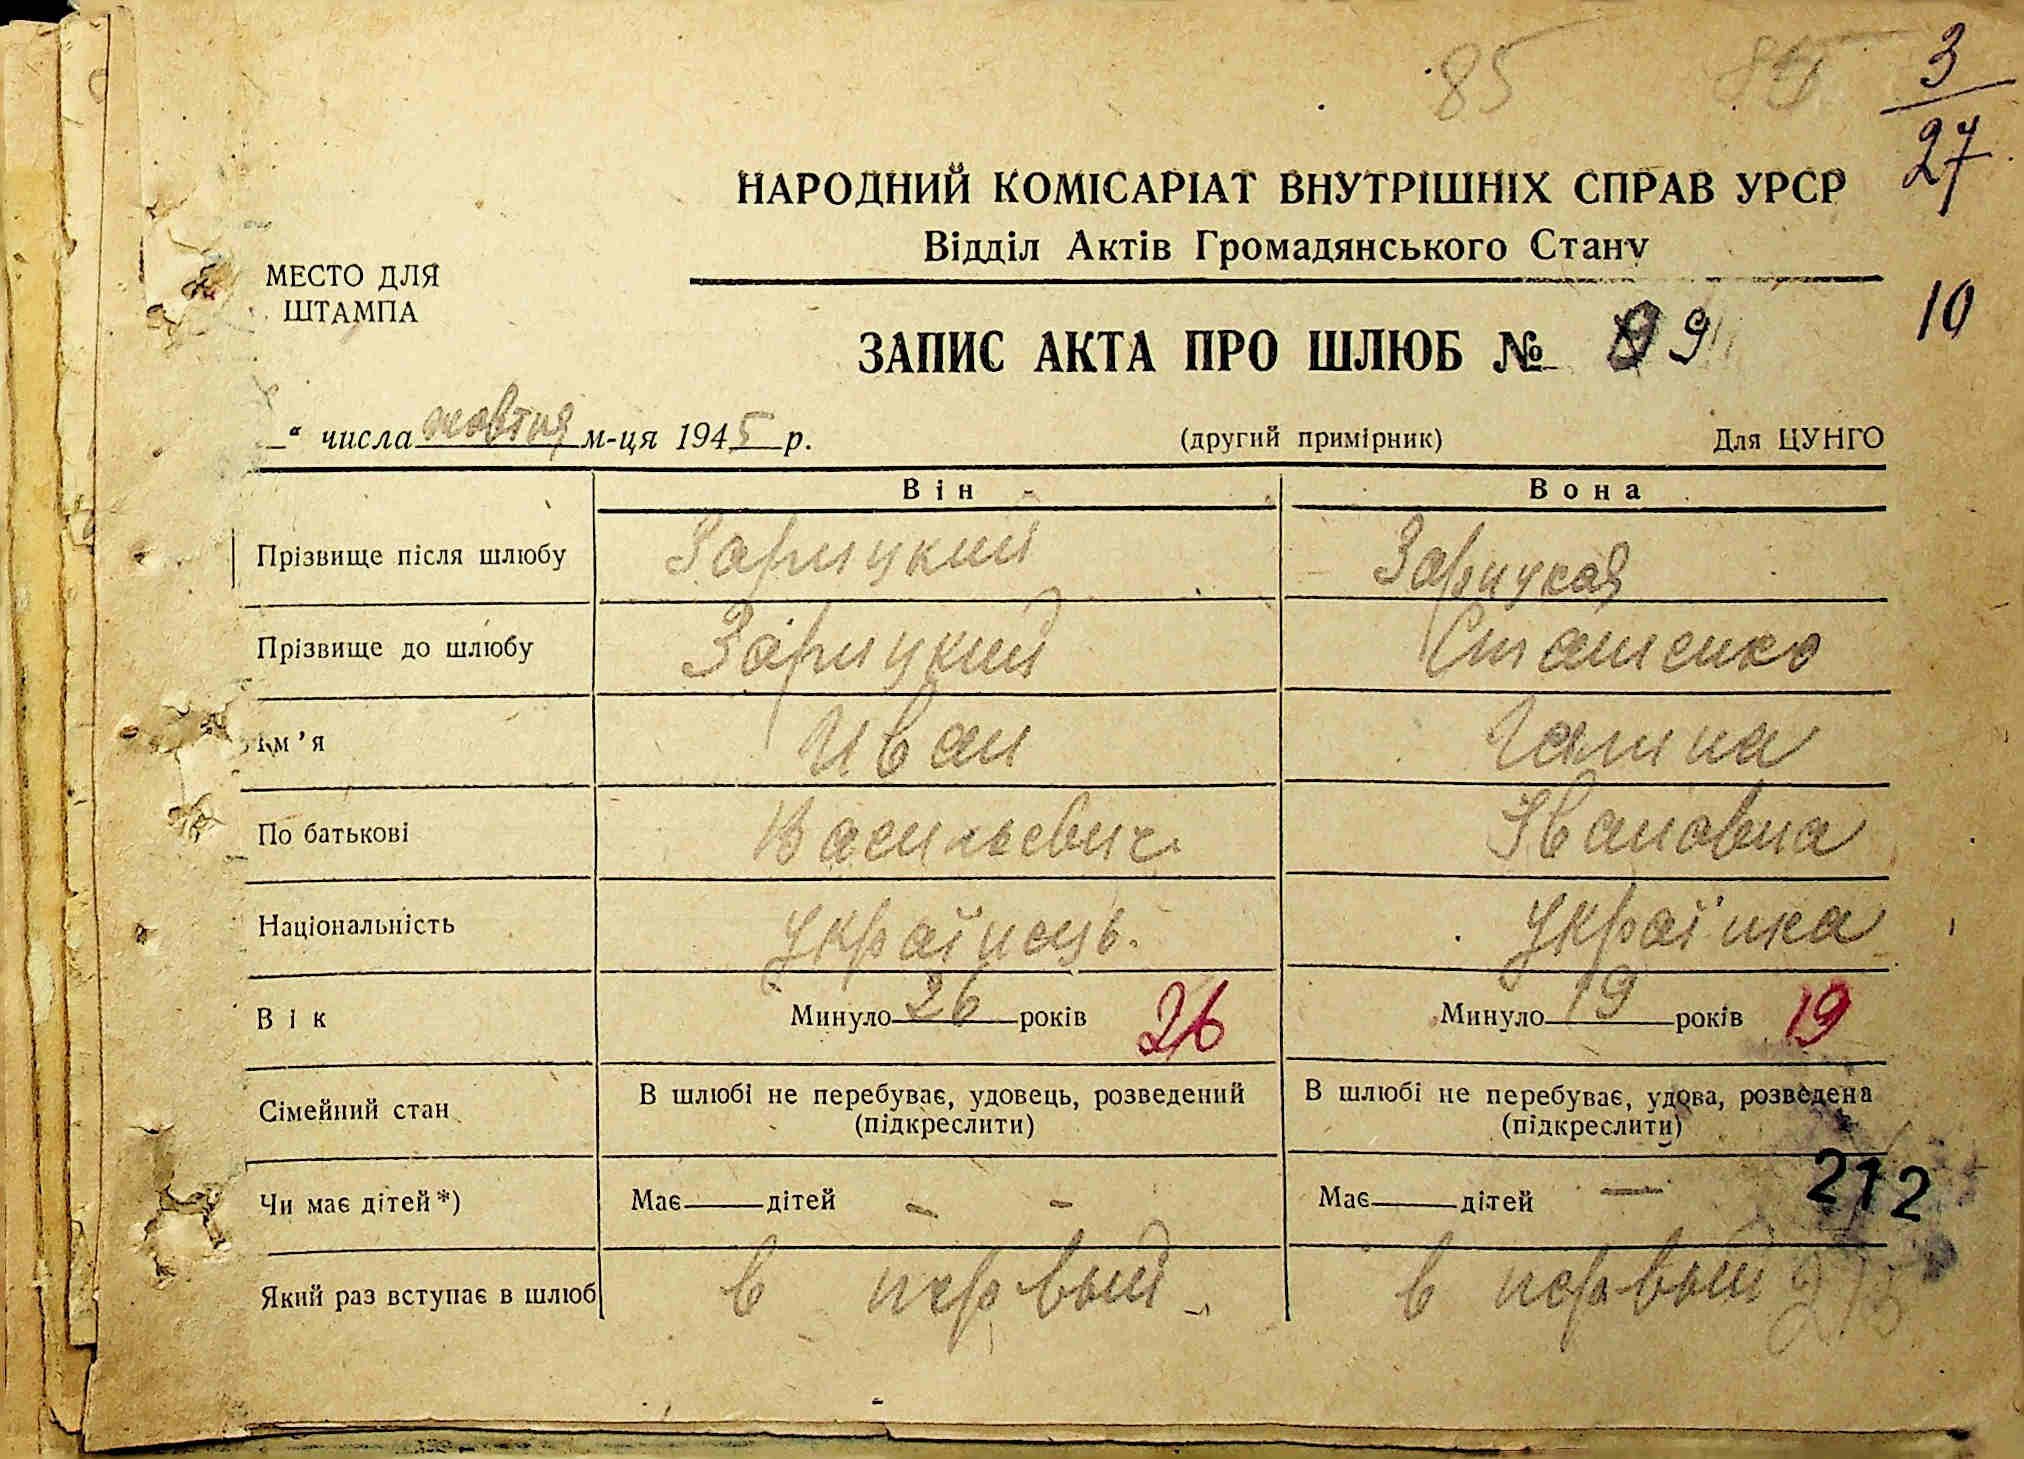 85 85 3
27
НАРОДНИЙ КОМІСАРІАТ ВНУТРІШНІХ СПРАВ УРСР
Відділ Актів Громадянського Стану
МЕСТО ДЛЯ
ШТАМПА
10
ЗАПИС АКТА ПРО ШЛЮБ № 99
„ числа жовтня м-ця 1945 р. (другий примірник) Для ЦУНГО
Він Вона
Прізвище після шлюбу Зарицкий Зарицкая
Прізвище до шлюбу Зарицкий Сташенко
Ім'я Иван Галина
По батькові Васильевич Ивановна
Національність Українець. Українка
Вік Минуло 26 років 26 Минуло 19 років 19
Сімейний стан В шлюбі не перебуває, удовець, розведений В шлюбі не перебуває, удова, розведена
(підкреслити) (підкреслити)
Чи має дітей*) Має — дітей — — Має — дітей — 212
Який раз вступає в шлюб в первый в первый